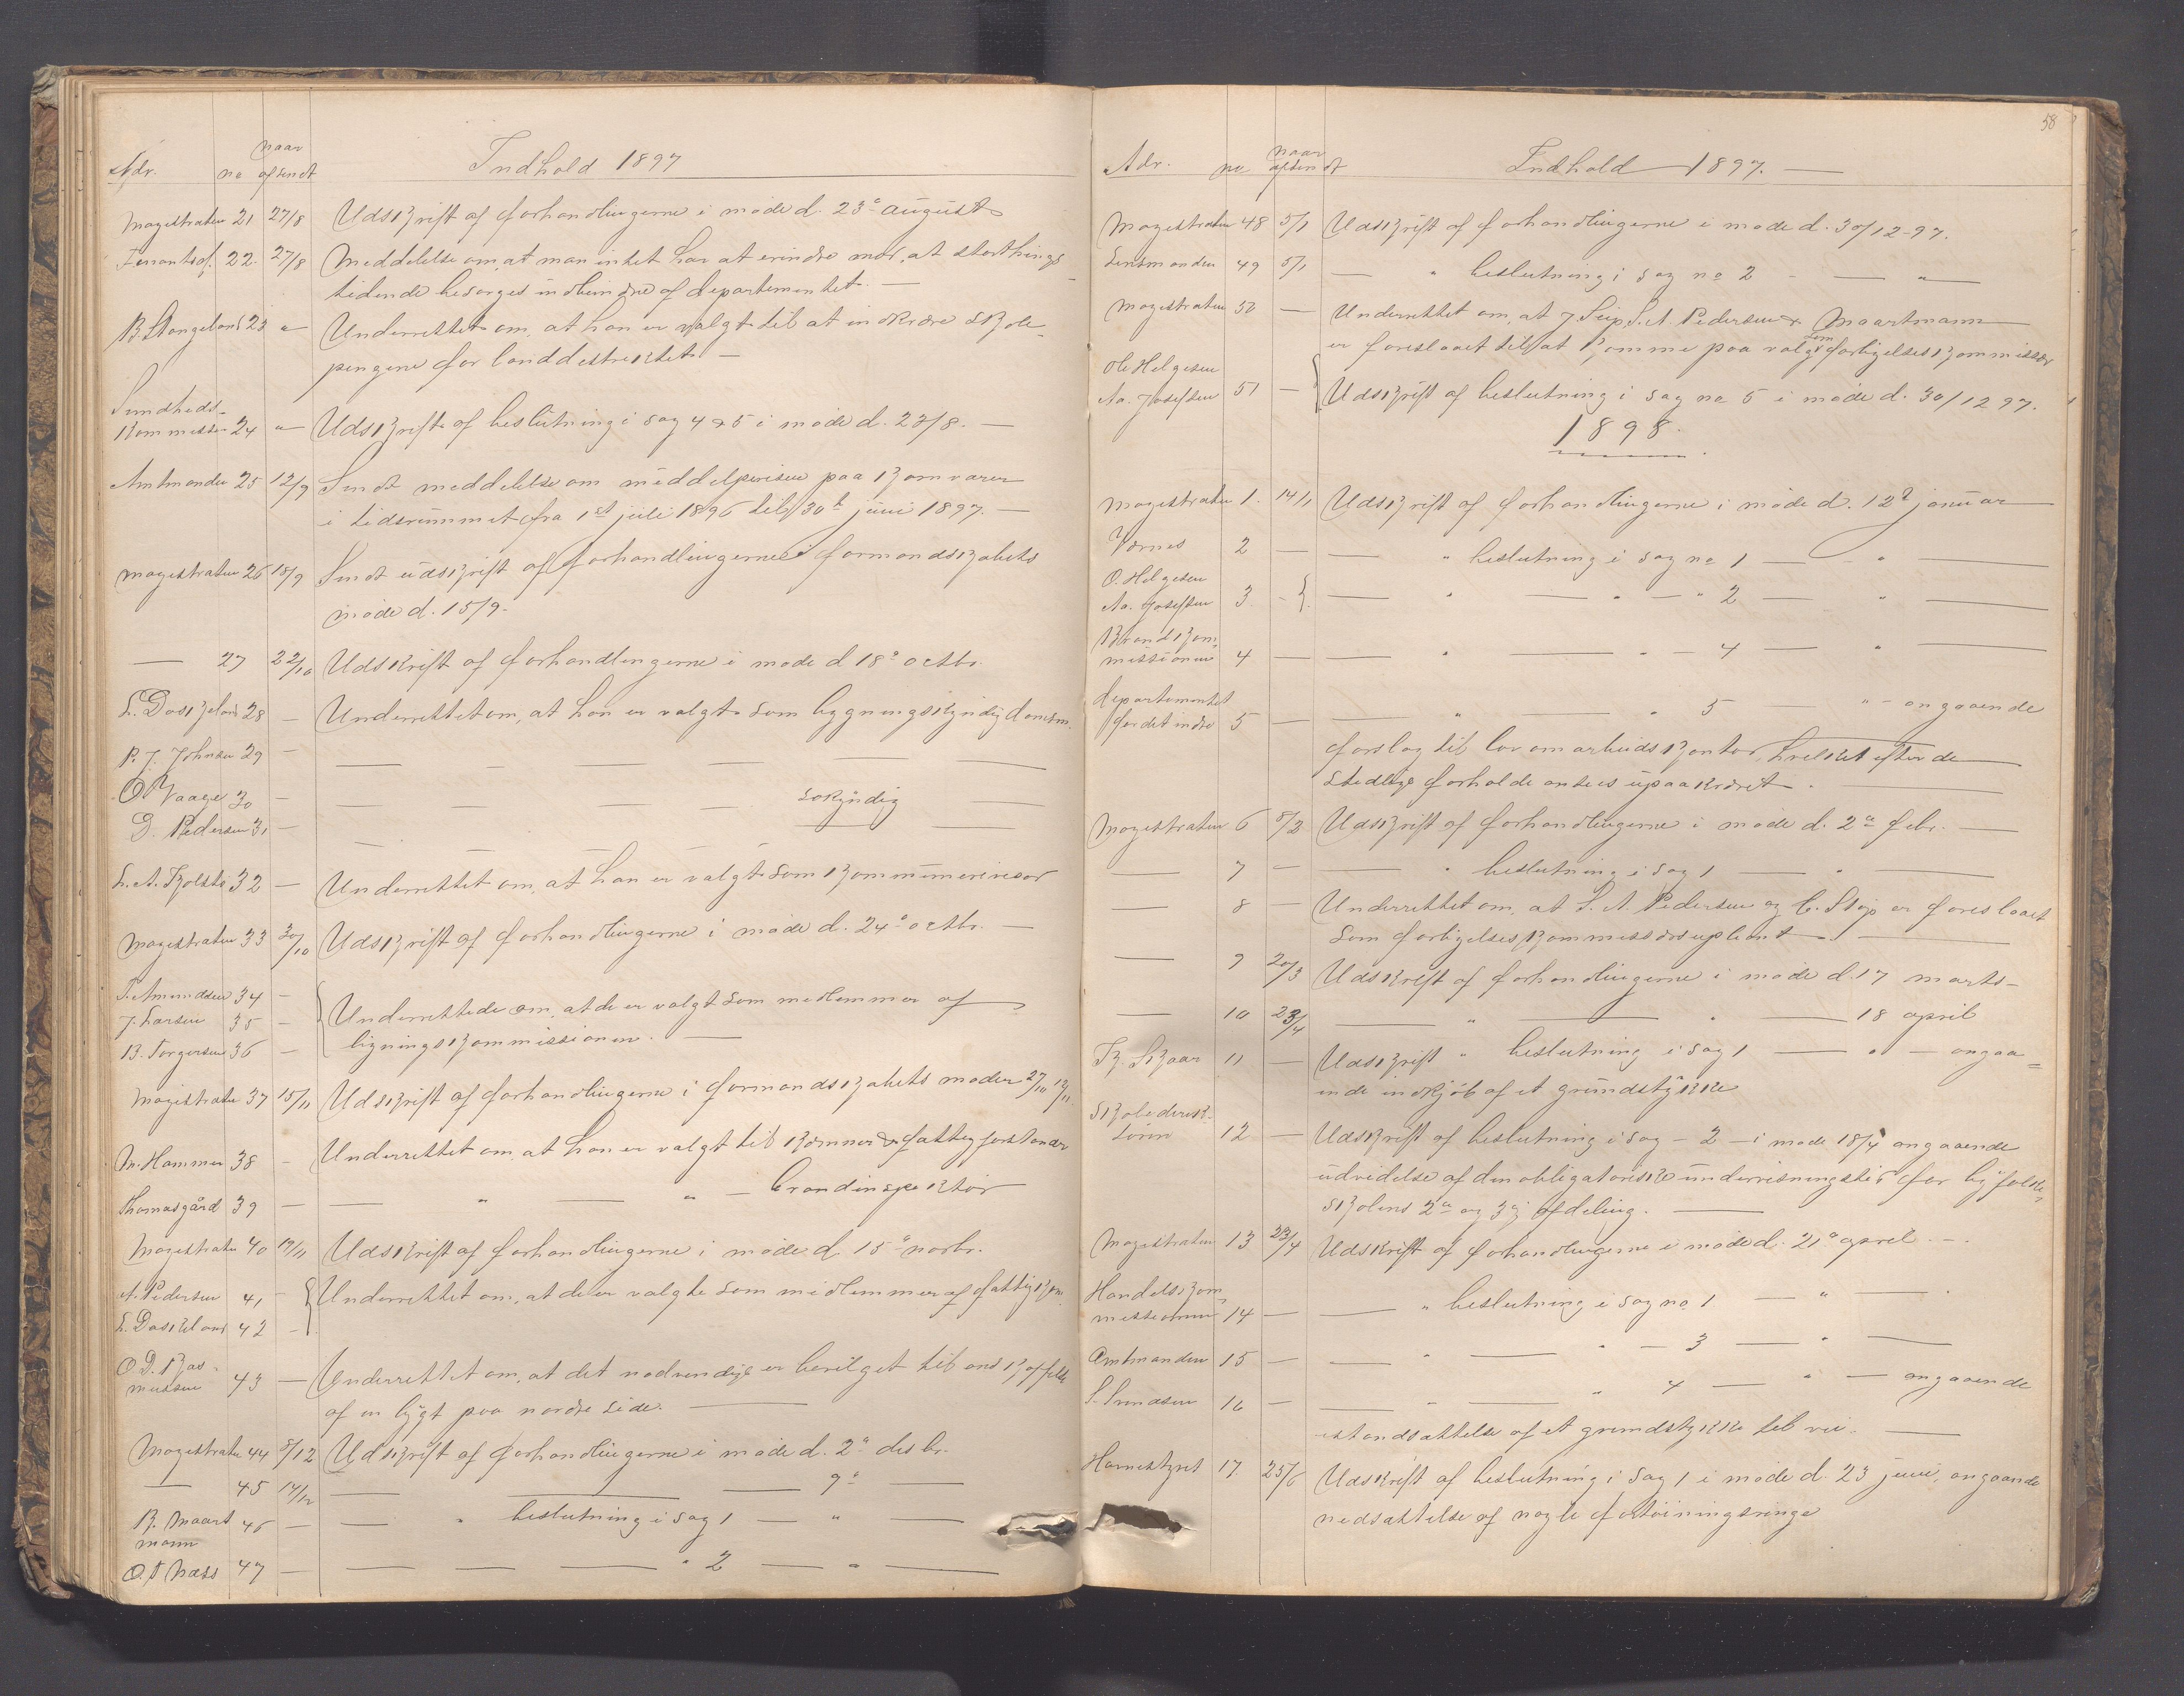 Adr. no naar afsendt Indhold 1897
Magistraten 21 27/8 Udskrift af forhandlingerne i møde d. 23de august
22. 27/8 Meddelelse om, at man intet har at erindre mod, at storthings-
tidende besørges indbundne af departementet. —
B. Stangeland 23 " Underrettet om, at han er valgt til at inkræve skole-
pengene for landdistriktet —
Sundheds-
kommissi 24 " Udskrift af beslutning i sag 4 & 5 i møde d. 23/8. —
Amtmanden 25 12/9 Sendt meddelelse om middelprisen paa kornvarer
i tidsrummet fra 1st juli 1896 til 30te juni 1897. —
Magistraten 26 18/9 Sendt udskrift af forhandlingerne i formandskabets
møde d. 15/9.
— 27 22/10 Udskrift af forhandlingerne i møde d 18de octbr.
L. Daskeland 28 — Underrettet om, at han er valgt som bygningskyndig domsm.
P. J. Johnsen 29 — — — — — —
O Vaage 30 — — — — — søkyndig —
D. Pedersen 31 — — — — — —
L. A. 32 — Underrettet om, at han er valgt som kommunerevisor
Magistraten 33 30/10 Udskrift af forhandlingerne i møde d. 24de octbr. —
T. Amundsen 34 — Underrettede om, at de er valgt som medlemmer af
J. Larsen 35 — ligningskommissionen. —
B. Torgersen 36 —
Magistraten 37 15/11 Udskrift af forhandlingerne i formandskabets møder 27/10 12/11.
M. Hammer 38 — Underrettet om, at han er valgt til kæmner & fattigforstander
Thomasgård 39 — — " — " — brandinspektør
Magistraten 40 17/11 Udskrift af forhandlingerne i møde d. 15de novbr.
A. Pedersen 41 — Underrettet om, at de er valgte som medlemmer af fattigkom
L. Daskeland 42 —
O. D. Ras-
mussen 43 — Underrettet om, at det nødvendige er bevilget til anskaffelse
af en lygt paa nordre side. —
Magistraten 44 8/12 Udskrift af forhandlingerne i møde d. 2de desbr.
— 45 17/12 — — — 9de —
B. Maart
mann 46 — — " beslutning i sag 1 — " —
O. T Næss 47 — — — " 2 — " —
58
Adr. no naar afsendt Indhold 1897. —
Magistraten 48 5/1 Udskrift af forhandlingerne i møde d. 30/12-97.
Lensmanden 49 5/1 — " beslutning i sag no 2 - — "
Magistraten 50 — Underrettet om, at J. Seip, S. A. Pedersen & Maartmann
er foreslaaet til at komme paa valg som forligelseskommissær
Ole Helgesen
Aa. Josefsen 51 — Udskrift af beslutning i sag no 5 i møde d. 30/12 97.
1898.
Magistraten 1. 14/1 Udskrift af forhandlingerne i møde d. 12te januar
Værnes 2 — — " beslutning i sag no 1 — " —
O. Helgesen
Aa. Josefsen 3 - — " — " — " 2 — " —
Brandkom-
missionen 4 — — " — " — 4 — " —
departementet
for det indre 5 — — " — " 5 " - angaaende
forslag til lov om arbeidskontor, hvilket efter de
stedlige forholde ansees upaakrævet. —
Magistraten 6 8/2 Udskrift af forhandlingerne i møde d. 2de febr. —
— 7 — — " beslutning i sag 1 — " —
— 8 — Underrettet om, at S. A. Pedersen og C. Støp er foreslaaet
som forligelseskommissærsupleant —. —
— 9 20/3 Udskrift af forhandlingerne i møde d. 17 marts —
— 10 23/4 — " — " — 18 april
Skaar 11 — Udskrift " beslutning i sag 1 — " — angaa-
ende indkjøb af et grundstykke
Skoledirek-
tøren 12 — Udskrift af beslutning i sag - 2 - i møde 18/4 angaaende
udvidelse af den obligatoriske undervisningstid for byfolke-
skolens 2den og 3dje afdeling. —
Magistraten 13 23/4 Udskrift af forhandlingerne i møde d. 21de april —.
Handelskom-
missionen 14 — — " beslutning i sag no 1 — " —
Amtmanden 15 — — " — " — 3 — " —
S. Svendsen 16 — — " — " 4 — " — angaaende
istandsættelse af et grundstykke til vei. —
Havnestyret 17 25/6 Udskrift af beslutning i sag 1 i møde d. 23 juni, angaaende
nedsættelse af nogle fortøiningsringe